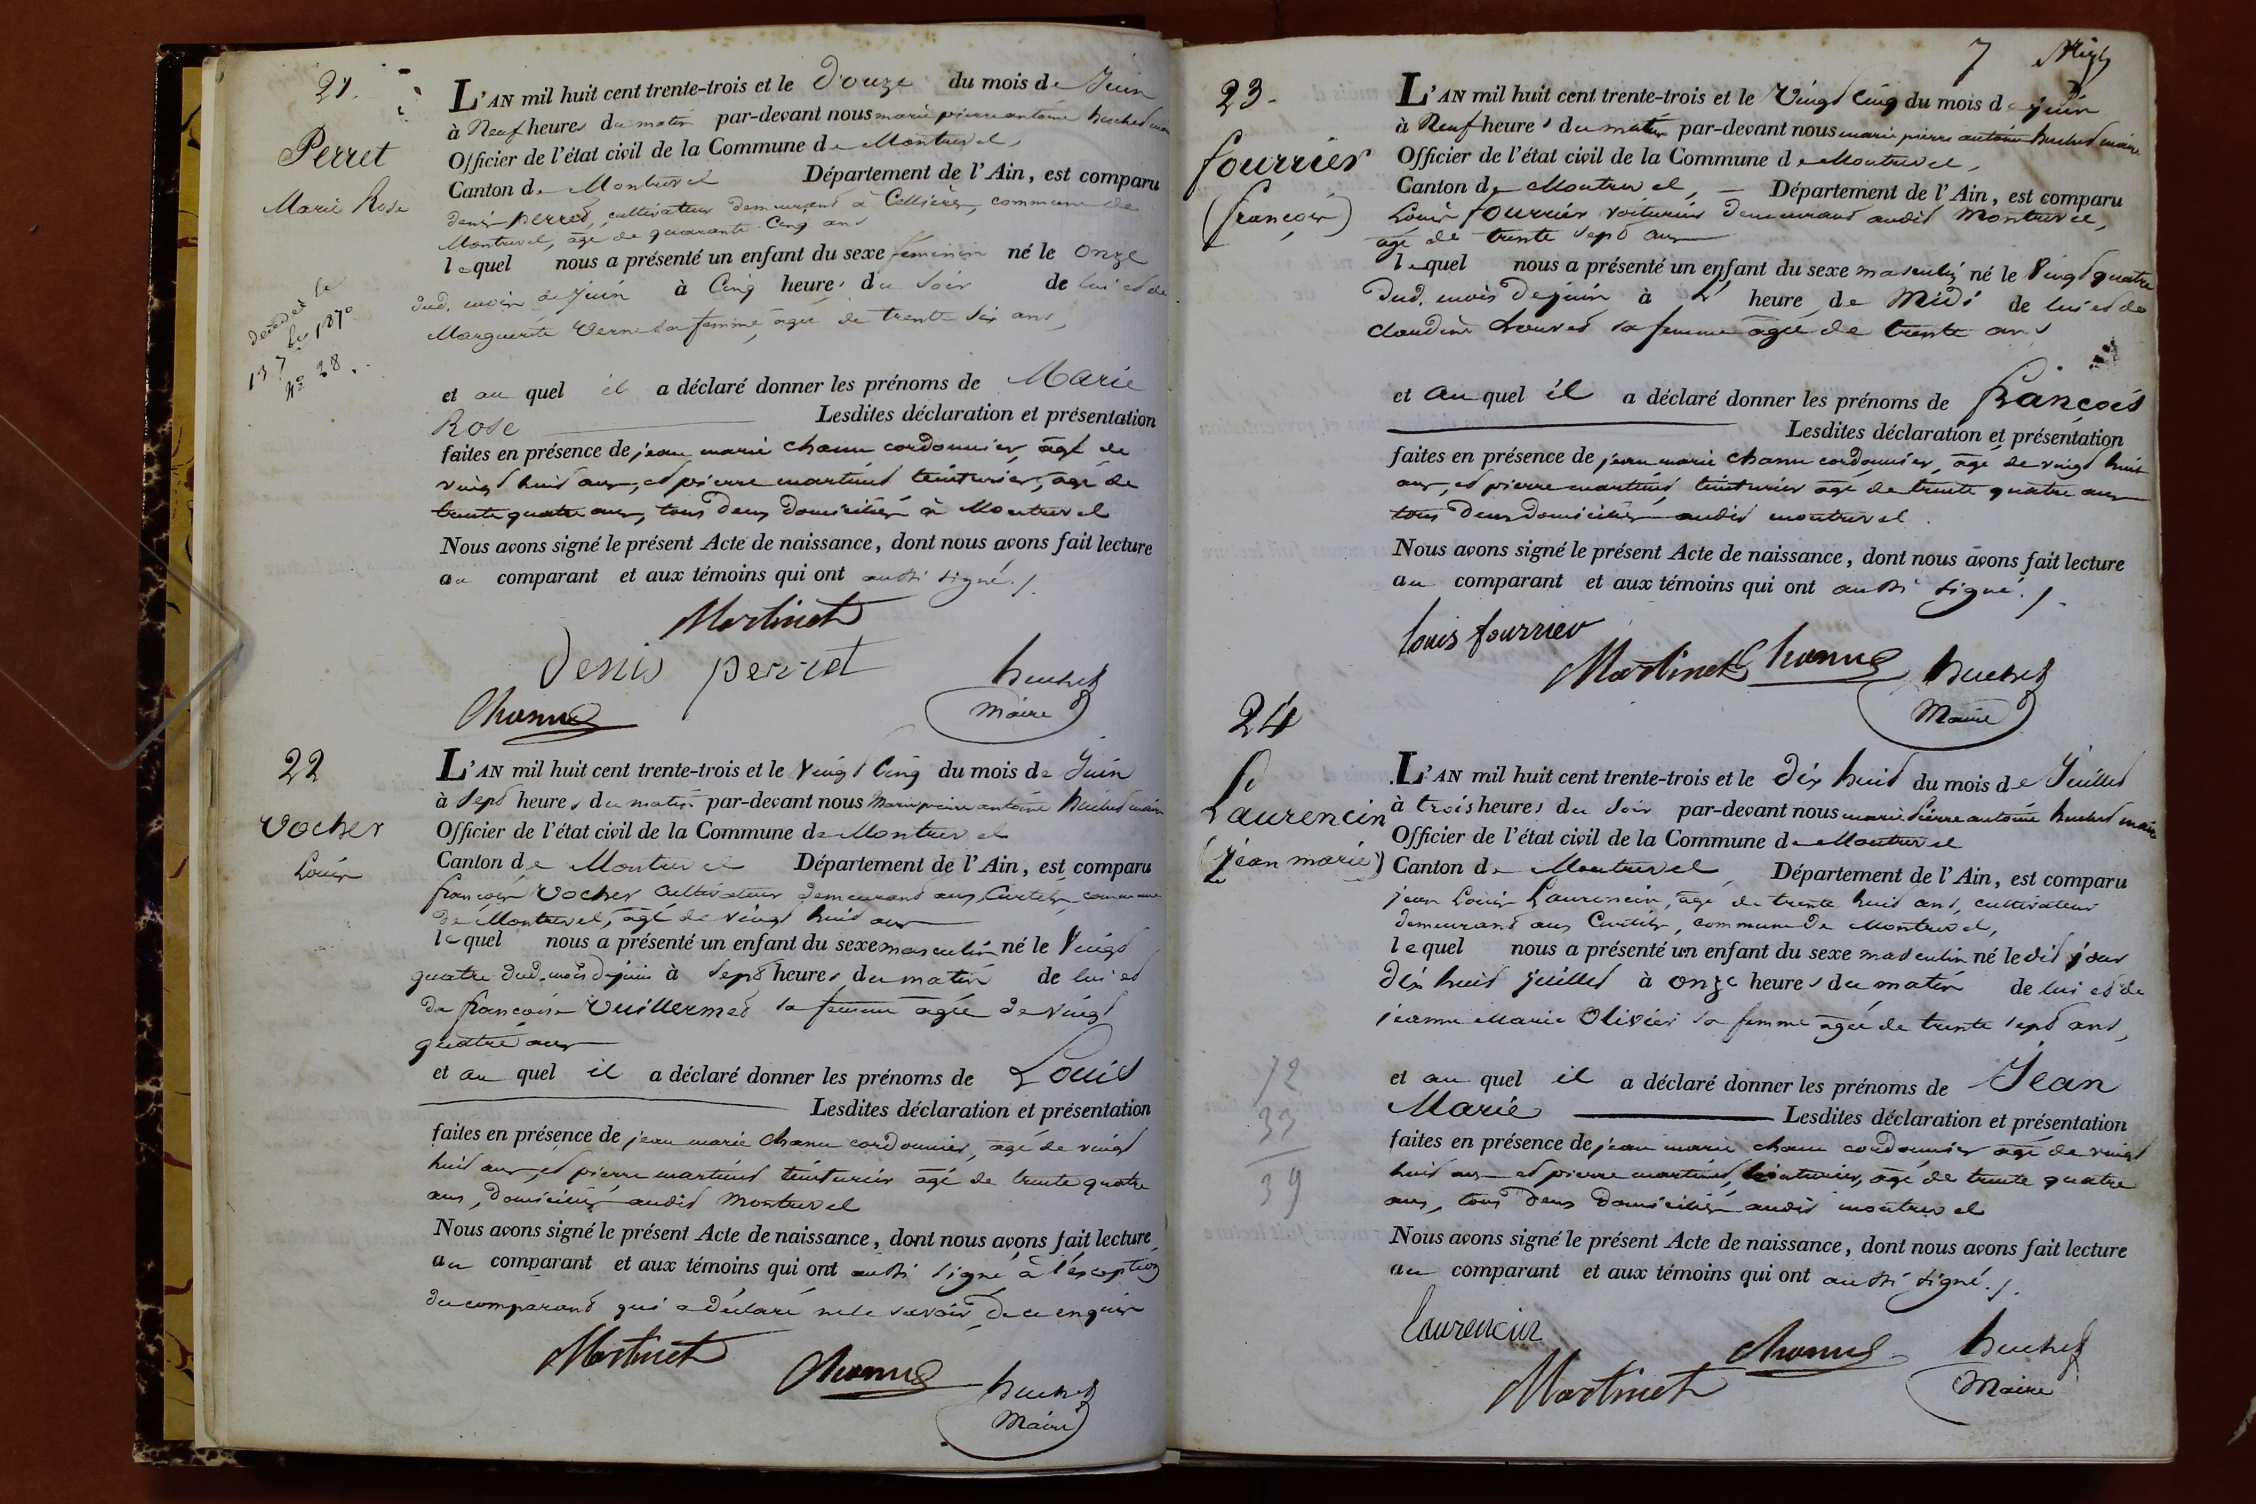 21.
Perret
Marie Rose
décédée le
1870
N° 28.
L'AN mil huit cent trente-trois et le Douze du mois de Juin
à Neuf heures du matin par-devant nous marie pierre antoine huchet maire
Officier de l'état civil de la Commune de Montrevel,
Canton de Montrevel Département de l'Ain, est comparu
denis perret, cultivateur demeurant à Cellières, commune de
Montrevel, âgé de quarante cinq ans
lequel nous a présenté un enfant du sexe féminin né le onze
dud. mois de Juin à Cinq heures du Soir de lui et de
Marguerite Verne sa femme, agée de trente six ans,
et au quel il a déclaré donner les prénoms de Marie
Rose Lesdites déclaration et présentation
faites en présence de jean marie chanu cordonnier, agé de
vingt huit ans, et pierre martinet teinturier, agé de
trente quatre ans, tous deux domiciliés à Montrevel
Nous avons signé le présent Acte de naissance, dont nous avons fait lecture
au comparant et aux témoins qui ont aussi signé./.
Martinet
denis perret
huchet
Chanu
Maire
22
Vocher
Louis
L'AN mil huit cent trente-trois et le Vingt Cinq du mois de Juin
à Sept heures du matin par-devant nous Marie pierre antoine huchet maire
Officier de l'état civil de la Commune de Montrevel
Canton de Montrevel Département de l'Ain, est comparu
françois Vocher Cultivateur demeurant aux Curtils, commune
de Montrevel, agé de vingt huit ans
lequel nous a présenté un enfant du sexe masculin né le Vingt
quatre dud. mois de juin à sept heures du matin de lui et
de françoise Vuillermet sa femme agée de vingt
quatre ans
et au quel il a déclaré donner les prénoms de Louis
Lesdites déclaration et présentation
faites en présence de jean marie chanu cordonnier, agé de vingt
huit ans, et pierre martinet teinturier agé de trente quatre
ans, domiciliés audit Montrevel
Nous avons signé le présent Acte de naissance, dont nous avons fait lecture
au comparant et aux témoins qui ont aussi signé à l'exception
du comparant qui a déclaré ne le savoir de ce enquis
Martinet
Chanu
huchet
Maire
7
23.
fourrier
(françois)
L'AN mil huit cent trente-trois et le Vingt Cinq du mois de juin
à Neuf heures du matin par-devant nous marie pierre antoine huchet maire
Officier de l'état civil de la Commune de Montrevel,
Canton de Montrevel, Département de l'Ain, est comparu
Louis fourrier voiturier demeurant audit Montrevel,
agé de trente sept ans
lequel nous a présenté un enfant du sexe masculin né le Vingt quatre
dud. mois de juin à heure de Midi de lui et de
claudine sa femme agée de trente ans
et au quel il a déclaré donner les prénoms de françois
Lesdites déclaration et présentation
faites en présence de jean marie chanu cordonnier, agé de vingt huit
ans, et pierre martinet, teinturier agé de trente quatre ans
tous deux domiciliés audit montrevel
Nous avons signé le présent Acte de naissance, dont nous avons fait lecture
au comparant et aux témoins qui ont aussi signé./.
louis fourrier
Martinet Chanu huchet
Maire
24
Laurencin
(jean marie)
72
33
39
L'AN mil huit cent trente-trois et le dix huit du mois de Juillet
à trois heures du Soir par-devant nous marie Pierre antoine huchet maire
Officier de l'état civil de la Commune de Montrevel
Canton de Montrevel Département de l'Ain, est comparu
jean Louis Laurencin, âgé de trente huit ans, cultivateur
demeurant aux Curtils, commune de Montrevel,
lequel nous a présenté un enfant du sexe masculin né le dit jour
dix huit juillet à onze heures du matin de lui et de
jeanne Marie Olivier sa femme agée de trente sept ans,
et au quel il a déclaré donner les prénoms de Jean
Marie Lesdites déclaration et présentation
faites en présence de jean marie chanu cordonnier agé de vingt
huit ans et pierre martinet, teinturier, agé de trente quatre
ans, tous deux domiciliés audit montrevel
Nous avons signé le présent Acte de naissance, dont nous avons fait lecture
au comparant et aux témoins qui ont aussi signé./.
Laurencin
Chanu
huchet
Martinet
Maire